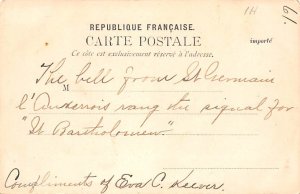 1H
61.
RÉPUBLIQUE FRANÇAISE.
CARTE POSTALE
importé
Ce côté est exclusivement réservé à l'adresse.
The bell from St Germain
M
l'Auxerrois rang the signal for
"St Bartholomew"
Compliments of Eva C. Keever.